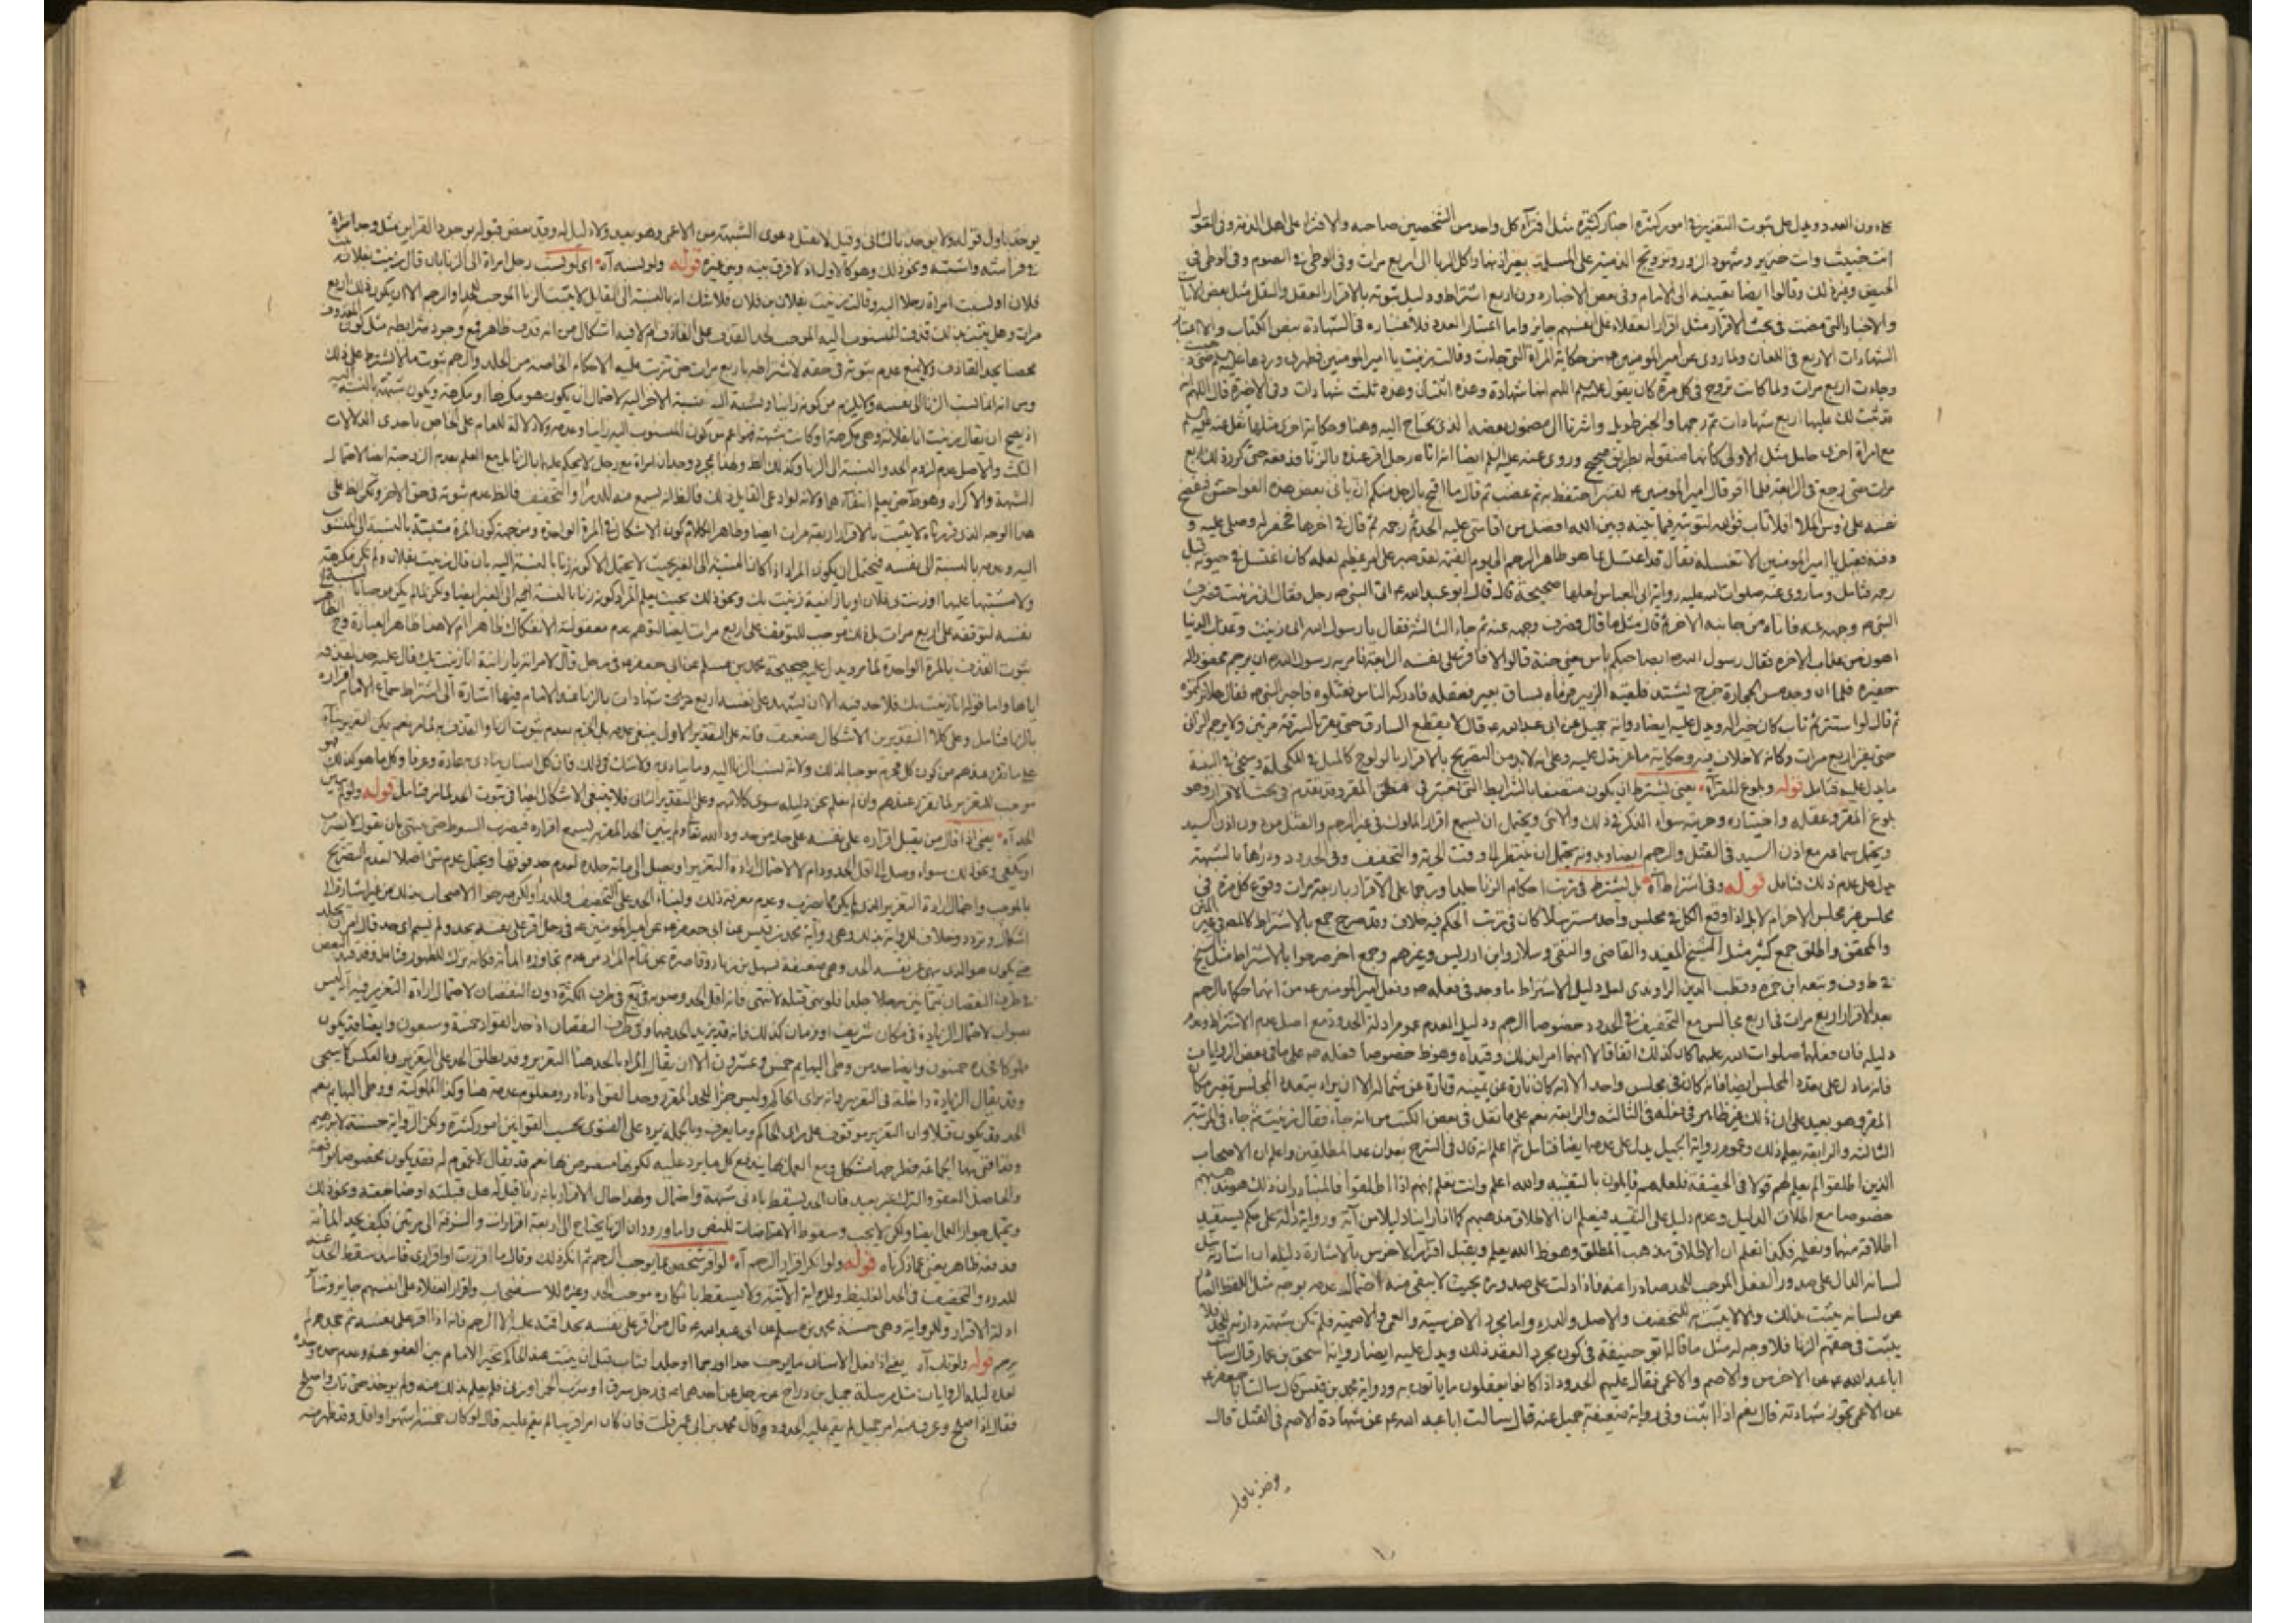 دون العدد ويدل على ثبوت التعزير في امور كثيرة اخبار كثيرة مثل افتراء كل واحد من الشخصين صاحبه والافتراء على اهل الذمة وفي القول
انت خبيث وانت خنزير وشهود الزور وتزويج الذمية على المسلمة بغير اذنها واكل الربا الى اربع مرات وفي الوطي في الصوم وفي الوطي في
الحيض وغير ذلك وقالوا ايضا تعيينه الى الامام وفي بعض الاخبار دون اربع اشتراط ودليل ثبوته بالاقرار العقل والنقل مثل بعض الايات
والاخبار التي مضت في بحث الاقرار مثل اقرار العقلاء على انفسهم جايز واما اعتبار العدد فلاعتباره في الشهادة ببعض الكتاب والاعتبار
الشهادات الاربع في اللعان ولما روى عن امير المؤمنين من حكاية المراة التي جاءت وقالت زنيت يا امير المؤمنين فطهرني وردها
وجاءت اربع مرات ولما كانت تروح في كل مرة كان يقول اللهم انها شهادة وهذه اثنتان وهذه ثلث شهادات وفي الاخيرة قال اللهم انه
قد ثبت لك عليها اربع شهادات ثم رجمها والخبر طويل واشرنا الى مضمون بعضه الذي يحتاج اليه وهنا حكاية اخرى مثلها نقل عنه
مع امراة اخرى حامل مثل الاولى كانها منقولة بطريق صحيح وروى عنه عليه السلم ايضا انه اتاه رجل اقر عنده بالزنا فدفعه حتى كرر ذلك اربع
مرات حتى رجع في الرابعة فلما اقر قال امير المؤمنين لقنبر احتفظ به ثم غضب ثم قال ما اقبح بالرجل منكم ان ياتي بعض هذه الفواحش فيفضح
نفسه على رؤس الملا افلا تاب فوالله لتوبته فيما بينه وبين الله افضل من اقامتي عليه الحد ثم رجمه ثم قال في اخرها فحفر له وصلى عليه و
دفنه فقيل يا امير المؤمنين الا تغسله فقال قد اغتسل بما هو طاهر الى يوم القيمة لقد صبر على امر عظيم لعله كان اغتسل في حيوته قبل
رجمه فتامل وما روى عنه صلوات الله عليه رواية ابي العباس لعلها صحيحة قال قال ابو عبد الله اتى النبي رجل فقال اني زنيت فصرف
النبي وجهه عنه فاتاه من جانبه الاخر ثم قال مثل ما قال فصرف وجهه عنه ثم جاء الثالثة فقال يا رسول الله اني زنيت وعذاب الدنيا
اهون من عذاب الاخرة فقال رسول الله ابصاحبكم باس يعني جنة قالوا لا فاقر على نفسه الرابعة فامر به رسول الله ان يرجم فحفروا له
حفيرة فلما ان وجد مس الحجارة خرج يشتد فلقيه الزبير فرماه بساق بعير فعقله فادركه الناس فقتلوه فاخبر النبي فقال هلا تركتموه
ثم قال لو استتر ثم تاب كان خيرا له ويدل عليه ايضا رواية جميل عن ابي عبد الله قال لا يقطع السارق حتى يقر بالسرقة مرتين ولا يرجم الزاني
حتى يقر اربع مرات وكانه لا خلاف فيه وحكاية ماعز يدل عليه وعلى انه لابد من التصريح بالاقرار بالولوج كالميل في المكحلة وسيجئ في البينة
ما يدل عليه فتامل قوله وبلوغ المقر آه يعني يشترط ان يكون متصفا بالشرايط التي اعتبر في مطلق المقر وقد تقدم في بحث الاقرار وهو
بلوغ المقر وعقله واختياره وحريته سواء الذكر في ذلك والانثى ويحتمل ان يسمع اقرار المملوك في غير الرجم والقتل من دون اذن السيد
ويحتمل سماعه مع اذن السيد في القتل والرجم ايضا وبدونه يحتمل ان ينتظر الى وقت الحرية والتخفيف وفي الحدود ودرؤها بالشبهة
يدل على عدم ذلك فتامل قوله وفي اشتراط آه بل يشترط في ترتب احكام الزنا جلدا ورجما على الاقرار باربعة مرات وقوع كل مرة في
مجلس غير مجلس الاخر ام لا بل اذا وقع الكل في مجلس واحد مسترسلا كان في ترتب الحكم فيه خلاف وقد صرح جمع بالاشتراط كالمصنف في غير المتن
والمحقق واطلق جمع كثير مثل الشيخ المفيد والقاضي والتقي وسلار وابن ادريس وغيرهم وجمع اخر صرحوا بالاشتراط مثل الشيخ
في ط وف وتبعه ابن حمزة وقطب الدين الراوندي لعل دليل الاشتراط ما وجد في فعله ص وفعل امير المؤمنين من انهما حكما بالرجم
بعد الاقرار اربع مرات في اربع مجالس مع التخفيف في الحدود خصوصا الرجم ودليل العدم عموم ادلة الحدود مع اصل عدم الاشتراط وعدم
دليله فان فعلهما صلوات الله عليهما كان كذلك اتفاقا لا انهما امرا بذلك وقيداه وهو ظ خصوصا فعله ص على ما في بعض الروايات
فانه ما دل على تعدد المجلس ايضا فانه كان في مجلس واحد الا انه كان تارة عن يمينه وتارة عن شماله الا ان يراد بتعدد المجالس تغير مكان
المقر وهو بعيد على ان ذلك غير ظاهر في فعله في الثالثة والرابعة نعم على ما نقل في بعض الكتب من انه جاء فقال زنيت ثم جاء في المرتبة
الثالثة والرابعة يعلم ذلك وعموم رواية الجميل يدل على عدمه ايضا فتامل ثم اعلم انه قال في الشرح بعد ان عد المطلقين واعلم ان الاصحاب
الذين اطلقوا لم يعلم لهم قولا في الحقيقة فلعلهم قايلون بالتقييد والله اعلم وانت تعلم انهم اذا اطلقوا فالمتبادر ان ذلك هو مذهبهم
خصوصا مع اطلاق الدليل وعدم دليل على التقييد فيعلم ان الاطلاق مذهبهم كما انا راينا دليلا من آية ورواية دالة على حكم يستفيد
اطلاقه منها ونعلم فكذا نعلم ان الاطلاق مذهب المطلق وهو ظ الله يعلم ويقبل اقرار الاخرس بالاشارة دليله ان اشارته مثل
لسانه الدال على صدور الفعل الموجب للحد صادرا عنه فاذا دلت على صدوره بحيث لا يبقى منه احتمال عدمه بوجه مثل اللفظ الصادر
عن لسانه يثبت بذلك والا لا يثبت به للتخفيف والاصل والدرء واما مجرد الاخرسية والعمي والاصمية فلم تكن شبهة دارئة للحد فلا
يثبت في حقهم الزنا فلا وجه له مثل ما قاله ابو حنيفة في كون مجرد العقد ذلك ويدل عليه ايضا رواية اسحق بن عمار قال سالت
ابا عبد الله عن الاخرس والاصم والاعمى فقال عليهم الحدود اذا كانوا يعقلون ما ياتون به ورواية محمد بن قيس قال سالت ابا جعفر
عن الاعمى تجوز شهادته قال نعم اذا اثبت وفي رواية ضعيفة جميل عنه قال سالت ابا عبد الله عن شهادة الاصم في القتل قال
يؤخذ باول
يؤخذ باول قوله ولا يؤخذ بالثاني وقيل لا تقبل دعوى الشبهة من الاعمى وهو بعيد ولا دليل له وقيد بعض قبوله بوجود القراين مثل وجد امراة
في فراشه واشتبه ونحو ذلك وهو كالاول اذ لا فرق بينه وبين غيره قوله ولو نسبه آه اي لو نسب رجل امراة الى الزنا بان قال زنيت بفلانة بنت
فلان او نسبت امراة رجلا اليه وقالت زنيت بفلان بن فلان فلا شك انه بالنسبة الى القايل لا يثبت الزنا الموجب للجلد او الرجم الا ان يكون ذلك اربع
مرات وهل يثبت بذلك قذف المنسوب اليه الموجب لحد القذف على القاذف ام لا فيه اشكال من انه قذف ظاهر فمع وجود شرايطه مثل كون المقذوف
محصنا يحد القاذف ولا يمنع عدم ثبوته في حقه لاشتراطه باربع مرات حتى ترتب عليه الاحكام الخاصة من الجلد والرجم ثبوت ما لا يشترط على ذلك
ومن انه انما نسب الزنا الى نفسه ولا يلزم من كونه زانيا نسبة الاخر اليه لاحتمال ان يكون هو مكرها او مكرهة ويكون شبهة بالنسبة اليه
اذ يصح ان يقال زنيت انا بفلانة وهي مكرهة او كانت شبهة فهو اعم من كون المنسوب اليه زانيا وعدمه ولا دلالة للعام على الخاص باحدى الدلالات
الثلث والاصل عدم لزوم الحد والنسبة الى الزنا وكذا ذلك الظ ولهذا بمجرد وجدان امراة مع رجل لا يحكم عليهما بالزنا بل مع العلم بعدم الزوجية ايضا لاحتمال
الشبهة والاكراه وهو ظ حتى يعلم انتفاؤهما ولانه لو ادعى القايل ذلك فالظ انه يسمع منه للدرء والتخفيف فالظ عدم ثبوته في حق الاخر ولكن الظ على
هذا الوجه الذي قررناه لا يثبت بالاقرار اربعة مرات ايضا وظاهر الكلام كون الاشكال في المرة الواحدة ومن جهة كون المرة مثبتة بالنسبة الى المنسوب
اليه وعدمه بالنسبة الى نفسه فيحتمل ان يكون المراد اذا كان النسبة الى الغير بحيث لا يحتمل الا كونه زنا بالنسبة اليه بان قال زنيت بفلان ولم تكن مكرهة
ولا مشتبها عليها او زنت في فلان او يا زانية زنيت بك ونحو ذلك بحيث يعلم المراد كونه زنا بالنسبة الى الغير ايضا ولكن لما لم يكن موجبا بالنسبة الى
نفسه لتوقفه على اربع مرات
ثبوت القذف بالمرة الواحدة لما مر ويدل عليه صحيحة محمد بن مسلم عن ابي جعفر في رجل قال لامراته يا زانية انا زنيت بك قال عليه حد لقذفه
اياها واما قوله انا زنيت بك فلا حد فيه الا ان يشهد على نفسه اربع شهادات بالزنا عند الامام وفيها اشارة الى اشتراط سماع الامام اقراره
بالزنا فتامل وعلى كلا التقديرين الاشكال ضعيف فانه على التقدير الاول ينبغي
موجب للتعزير لما تقرر عندهم وان لم نعلم نحن دليله سوى كلامهم وعلى التقدير الثاني فلا ينبغي الاشكال ايضا في ثبوت الحد لما مر فتامل قوله ولو لم يبين
الحد آه يعني اذا اقر من يقبل اقراره على نفسه على حد من حدود الله تعالى ولم يبين الحد المقر به يسمع اقراره فيضرب السوط حتى ينتهي بان يقول لا تضرب
او يكفي ونحو ذلك سواء وصل الى اقل الحدود ام لا لاحتمال ارادة التعزير او يصل الى مائة جلدة لعدم حد فوقها ويحتمل عدم شئ اصلا لعدم التصريح
بالموجب واحتمال ارادة التعزير
اشكال وتردد وخلاف للرواية بذلك وهي رواية محمد بن قيس عن ابي جعفر عن امير المؤمنين في رجل اقر على نفسه بحد ولم يسم اي حد قال امر ان يجلد
حتى يكون هو الذي ينهى عن نفسه الحد وهي ضعيفة بسهل بن زياد وقاصرة عن تمام المراد من عدم تجاوزه المائة فكانه ترك للظهور فتامل وقد قيد البعض
في طرف النقصان بثمانين
بصواب لاحتمال الزيادة في مكان شريف او زمان كذلك فانه قد يزيد الحد فيهما وفي طرف النقصان اذ حد القواد خمسة وسبعون وايضا قد يكون
مملوكا فحده خمسون وايضا حد من وطئ البهايم خمس وعشرون الا ان يقال المراد بالحد هنا التعزير وقد يطلق الحد على التعزير وبالعكس كما سيجئ
وقد يقال الزيادة داخلة في التعزير وانه براي الحاكم وليس جزءا للحد المقرر وحد القواد نادر ومعلوم عدمه هنا وكذا المملوكية ووطئ البهايم نعم
الحد قد يكون قتلا وان التعزير موقوف على راي الحاكم وما يعرف وبالجملة نيره على الفتوى بحسب القوانين امور كثيرة ولكن الرواية حسنة لابراهيم
وقد افتى بها الجماعة فطرحها مشكل ومع العمل بها يندفع كل ما يرد عليه لكونها مخصوصة
والحاصل العفو والترك غير بعيد فان الحد يسقط بادنى شبهة واحتمال ولهذا حال الاقرار بانه زنا قيل له هل قبلته او ضاجعته ونحو ذلك
ويحتمل جواز العمل ايضا ولكن لا يجب وسقوط الاعتراضات للنص واما ورود ان الزنا يحتاج الى اربعة اقرارات والسرقة الى مرتين فكيف يحد المائة
فدفعه ظاهر يعني مما ذكرناه قوله ولو انكر اقرار الرجم آه لو اقر شخص بما يوجب الرجم ثم انكر ذلك وقال ما اقررت او اقراري فاسد سقط الحد عنه
للدرء والتخفيف في الحد الغليظ وللرواية الآتية ولا يسقط بانكاره موجب الحد وغيره للاستصحاب واقرار العقلاء على انفسهم جايز وساير
ادلة الاقرار وللرواية وهي حسنة محمد بن مسلم عن ابي عبد الله قال من اقر على نفسه بحد اقمته عليه الا الرجم فانه اذا اقر على نفسه ثم جحد لم
يرجم قوله ولو تاب آه يعني اذا فعل الانسان ما يوجب حدا او رجما او جلدا فتاب قبل ان يثبت عند الحاكم تخير الامام بين العفو عنه وعدم حده وحده
لعل دليله الروايات مثل مرسلة جميل بن دراج عن رجل عن احدهما في رجل سرق او شرب الخمر او زنى فلم يعلم بذلك منه ولم يؤخذ حتى تاب واصلح
فقال اذا اصلح وعرف منه امر جميل لم يقم عليه الحدود وقال محمد بن ابي عمير قلت فان كان امرا قريبا لم يقم عليه قال لو كان خمسة اشهر او اقل وقد ظهر منه